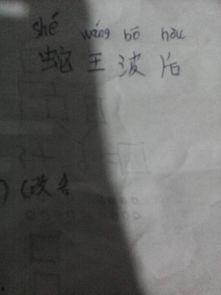 shé wáng bō hòu
蛇王波后
) (改名